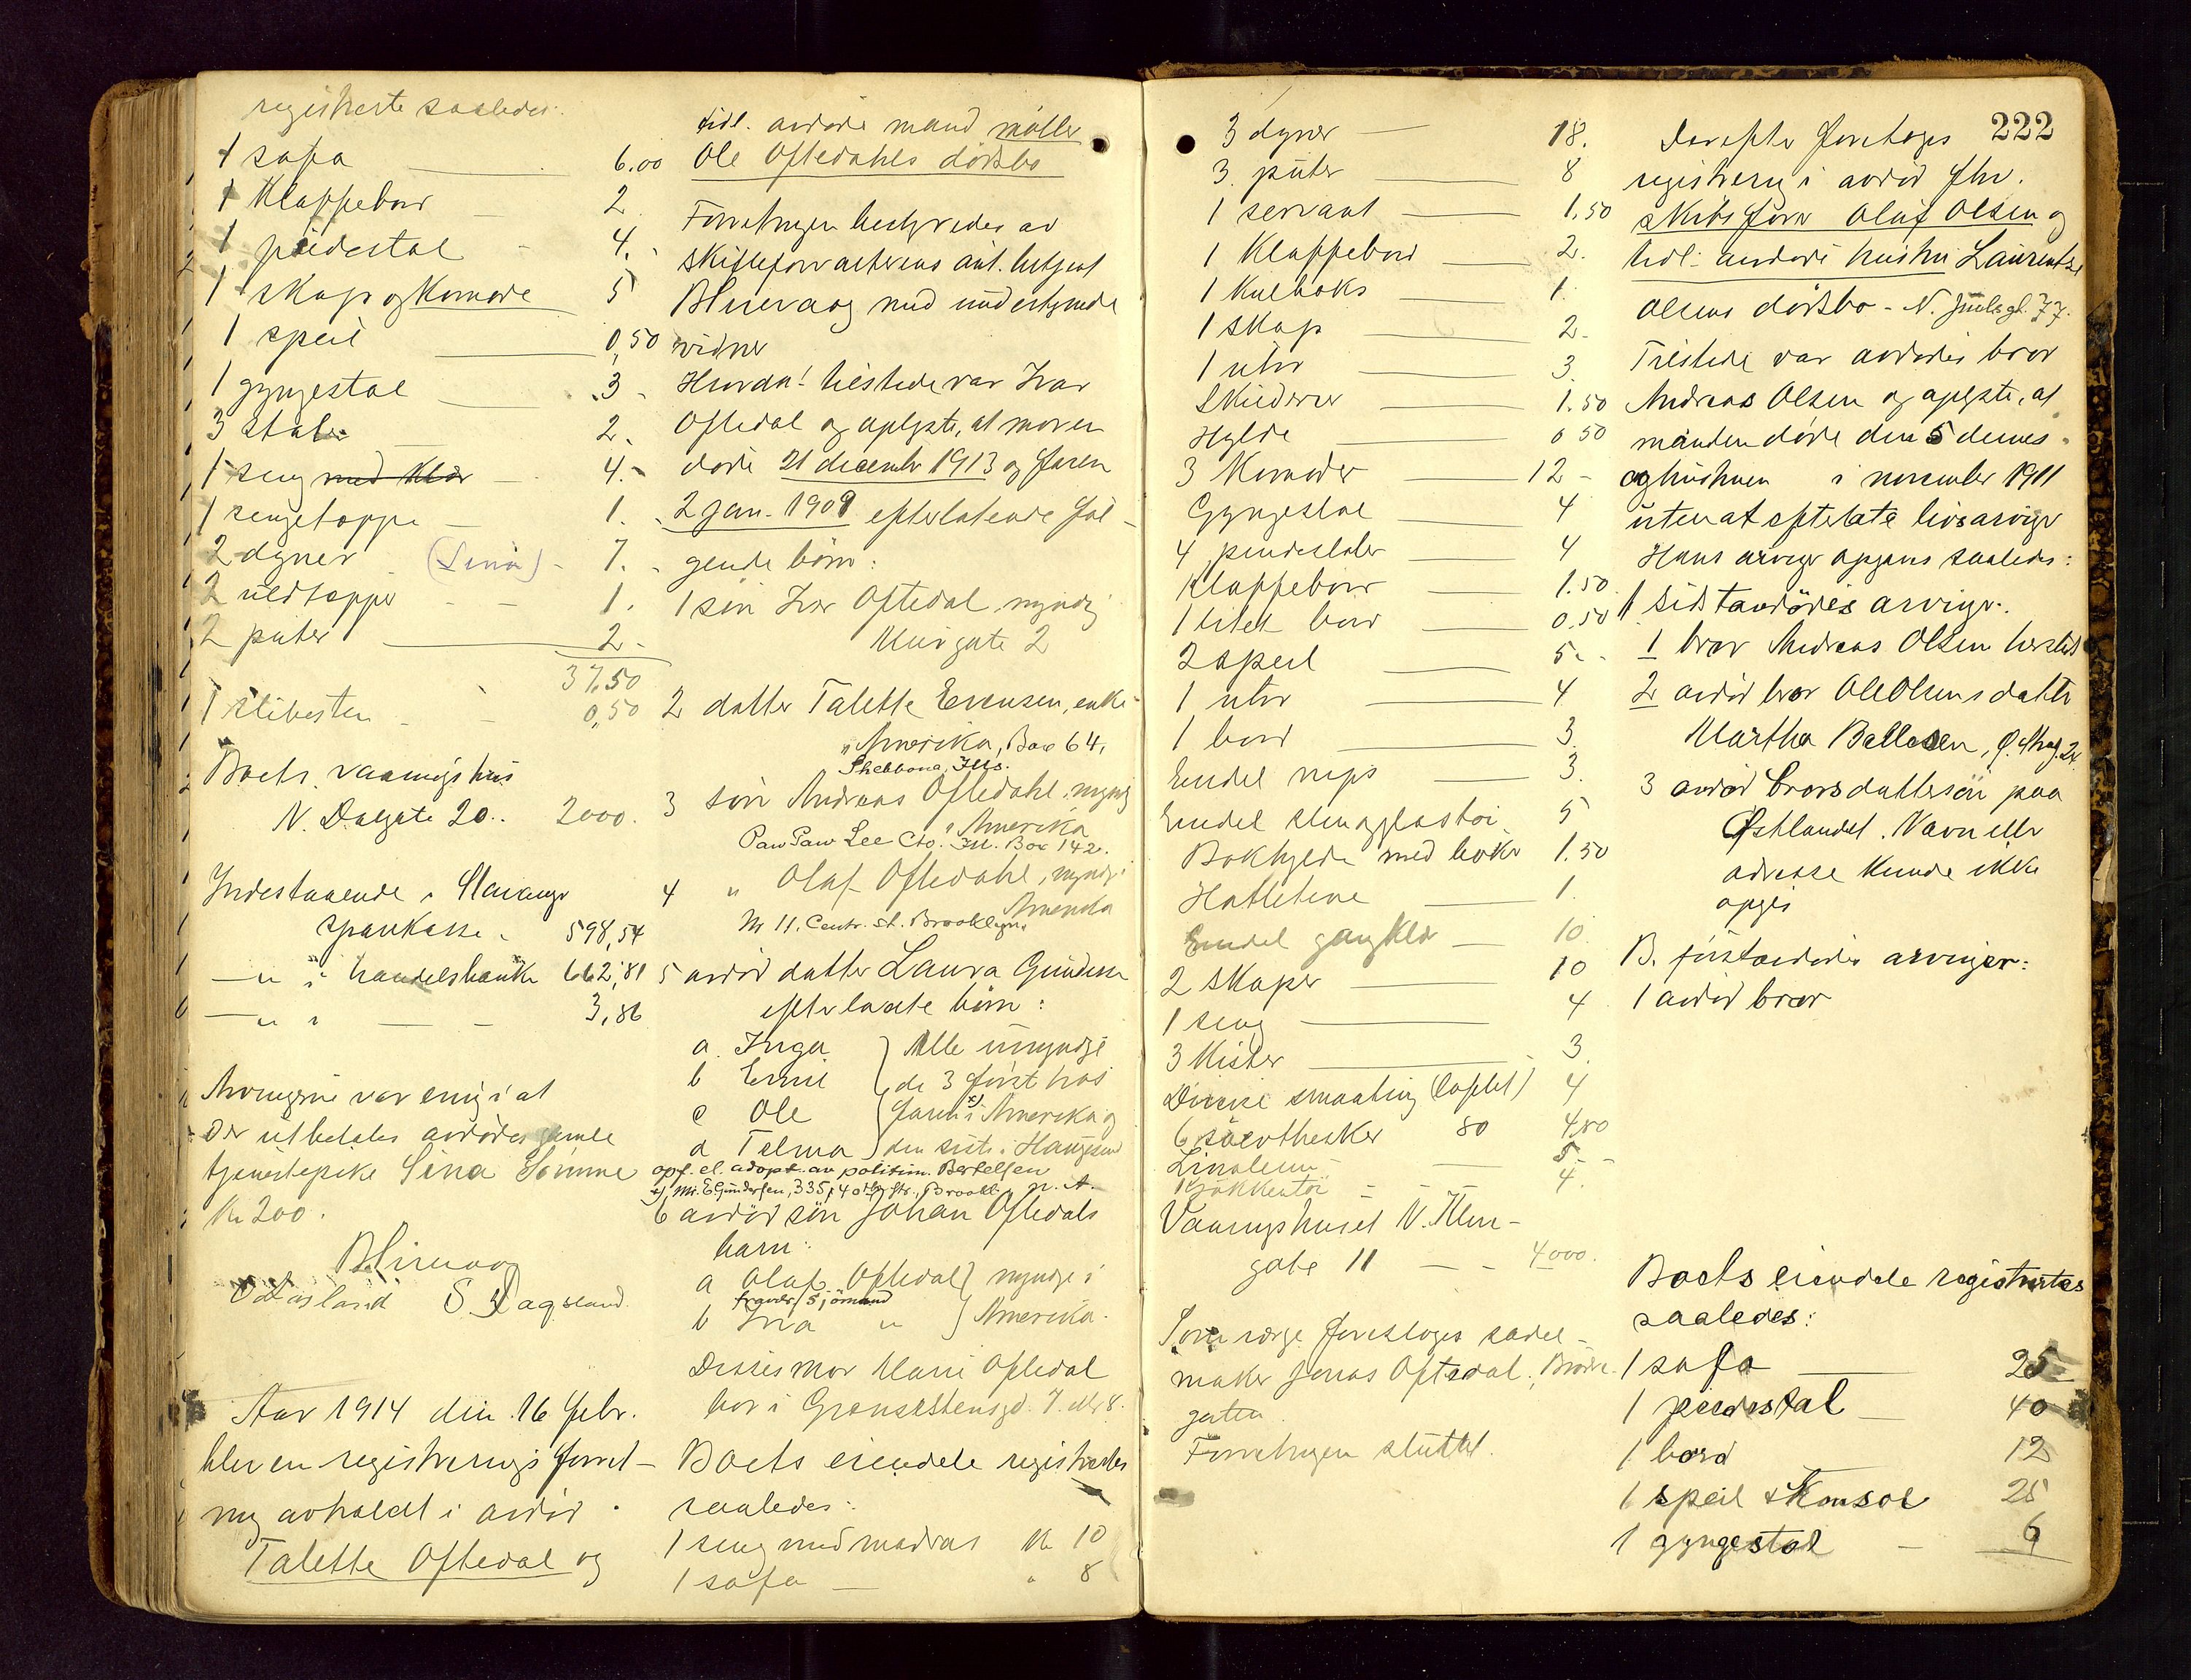 registrerte saaledes:
1 sofa 6.00
1 Klappebord 2
1 pidestal 4.
1 skap og Komode 5
1 speil 0,50
1 gyngestol 3
3 stoler 2.
1 seng med Klær 4.
1 sengetæppe 1.
2 dyner (Sina) 7.
2 uldtæpper 1.
2 puter 2
37.50
1 slibesten 0,50
Boets vaaningshus
N. Dalgate 20. 2000.
Indestaaende i Stavanger
sparekasse 598,54
— " i handelsbank 662,81
— " i — 3,86
Arvingerne var enig i at
der utbetales avdødes gamle
tjenestepike Sina Sømme
Kr 200.
S. Dagsland
Aar 1914 den 16 febr.
blev en registreringsforret-
ning avholdt i avdød
Talette Oftedal og
tidl. avdøde mand møller
Ole Oftedahls dødsbo
Forretningen bestyredes av
skifteforvalterens aut. betjent
med undertegnede
vidner
Hvorda! tilstede var Ivar
Oftedal og oplyste, at moren
døde 21 december 1913 og faren
2 jan. 1909 efterlatende føl-
gende børn:
1 søn Ivar Oftedal, myndig
Murgate 2
2 datter Talette Evensen, enke
i Amerika, Box 64,
Shabbona, Ills.
3 søn Andreas Oftedahl, myndig
i Amerika
Paw Paw Lee Cto. Ill. Box 142.
4 " Olaf Oftedahl, myndig
Amerika
Nr 11, Centr. st. Brooklyn,
5 avdød datter Laura Gundersen
efterlatte børn:
a. Inga } Alle umyndige
b Emil } de 3 først hos
c Ole } faren x) i Amerika og
d Telma } den siste i Haugesund
opf. el. adopt. av politim. Bertelsen
x) Mr. E Gundersen, 335, 40 th str., Brookl. n. A.
6 avdød søn Johan Oftedals
barn:
a Olaf Oftedal } myndige i
sjømand
b Iria " } Amerika.
Disses mor Marie Oftedal
bor i Gransestensgd. 7. Nr 8.
Boets eiendele registrertes
saaledes:
1 seng med madras Kr 10
1 sofa — " 8
3 dyner — 18.
3 puter 8
1 servant 1.50
1 Klappebord 2.
1 Kulboks 1.
1 skap 2
1 uhr 3
Skilderier 1.50
Hylde 0 50
3 Komoder 12
Gyngestol 4
4 pindestoler 4
Klappebord 1.50
1 litet bord 0.50
2 speil 5
1 uhr 4
1 bord 3
Endel nips 3
Endel sten og glastøi 5
Bokhylde med bøker 1.50
1.
Endel gangklær 10
2 skaper 10
1 seng 4
3 Kister 3
Diverse smaating (loftet) 4
6 sølvtheskeer 80 4.80
Linoleum 5
Kjøkkentøi 4.
Vaaningshuset N.
gate 11 4000.
Som verge foresloges sadel-
maker Jonas Oftedal,
gaten.
Forretningen sluttet.
222
Derefter foretoges
registrering i avdød fhv.
skibsfører Oluf Olsen og
tidl. avdøde hustru Laurentze
Olsens dødsbo - 77.
Tilstede var avdødes bror
Andreas Olsen og oplyste, at
manden døde den 5 dennes
og hustruen i november 1911
uten at efterlate livsarvinger
Hans arvinger opgaves saaledes:
A sidstavdødes arvinger.
1 bror Andreas Olsen hersteds
2 avdød bror Ole Olsens datter
Martha
3 avdød brorsdattersøn paa
Østlandet. Navn eller
adresse kunde ikke
opgis
B. førstavdødes arvinger:
1 avdød bror
Boets eiendele registrertes
saaledes:
1 sofa 25
1 piedestal 40
1 bord 12
1 speil & Konsol 25
1 gyngestol 6